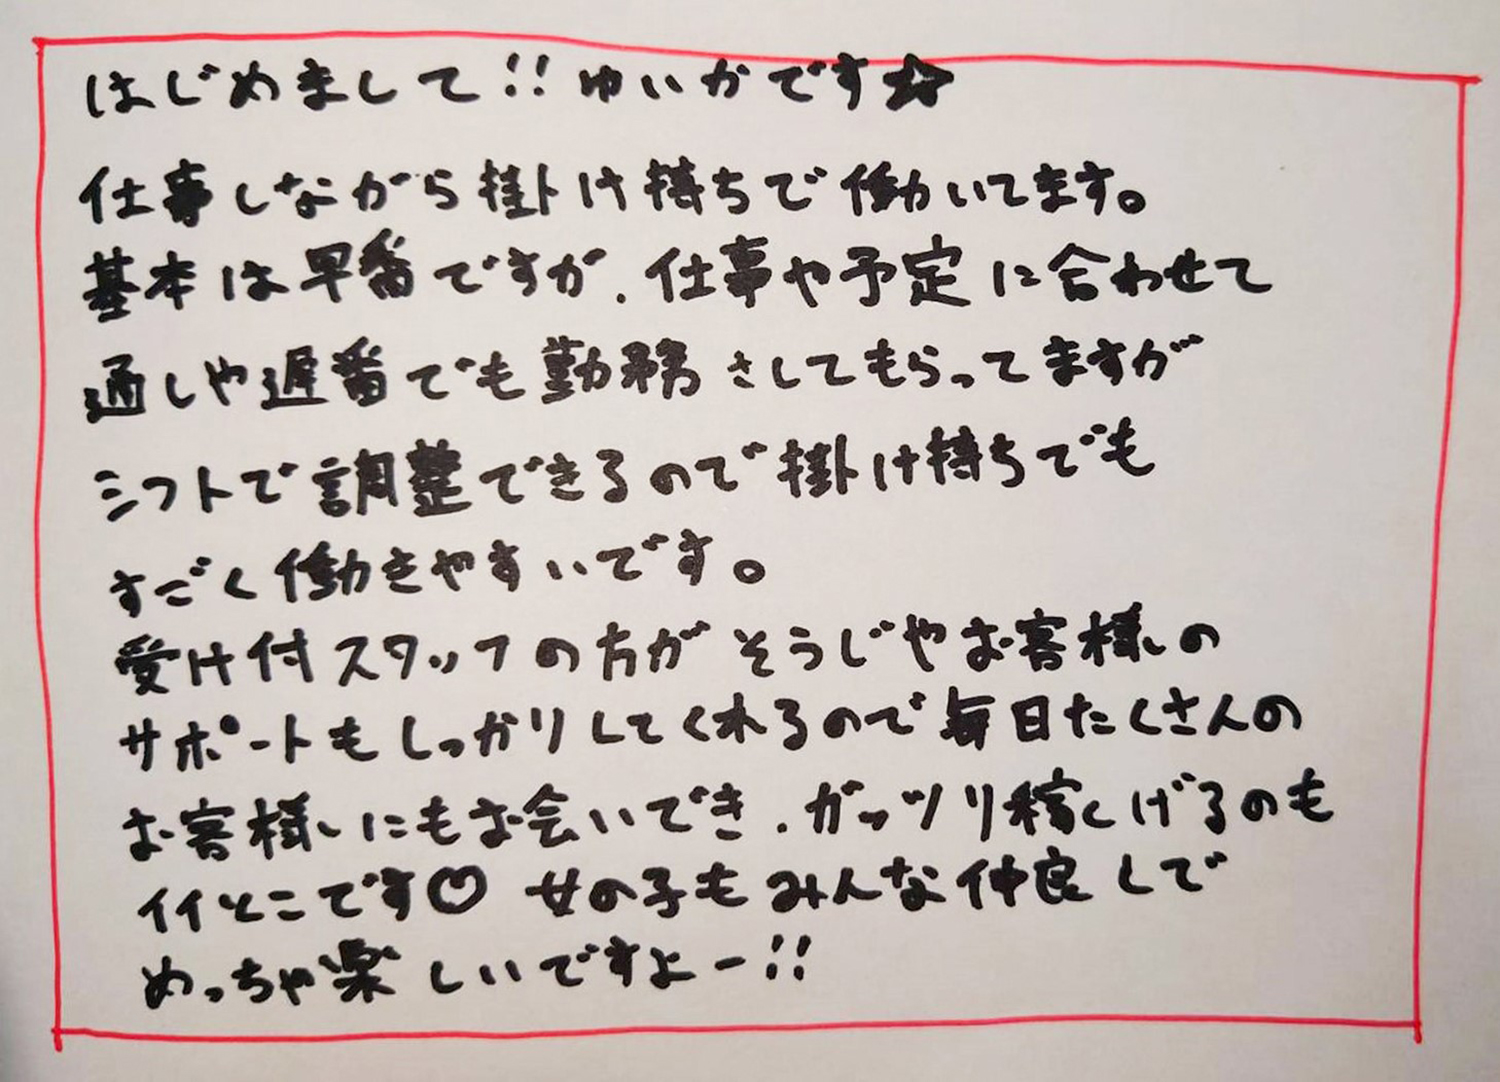 はじめまして!! ゆいかです☆
仕事しながら掛け持ちで働いてます。
基本は早番ですが、仕事や予定に合わせて
通しや遅番でも勤務さしてもらってますが
シフトで調整できるので掛け持ちでも
すごく働きやすいです。
受け付スタッフの方がそうじやお客様の
サポートもしっかりしてくれるので毎日たくさんの
お客様にもお会いでき、ガッツリ稼げるのも
イイとこです♡ 女の子もみんな仲良しで
めっちゃ楽しいですよー!!